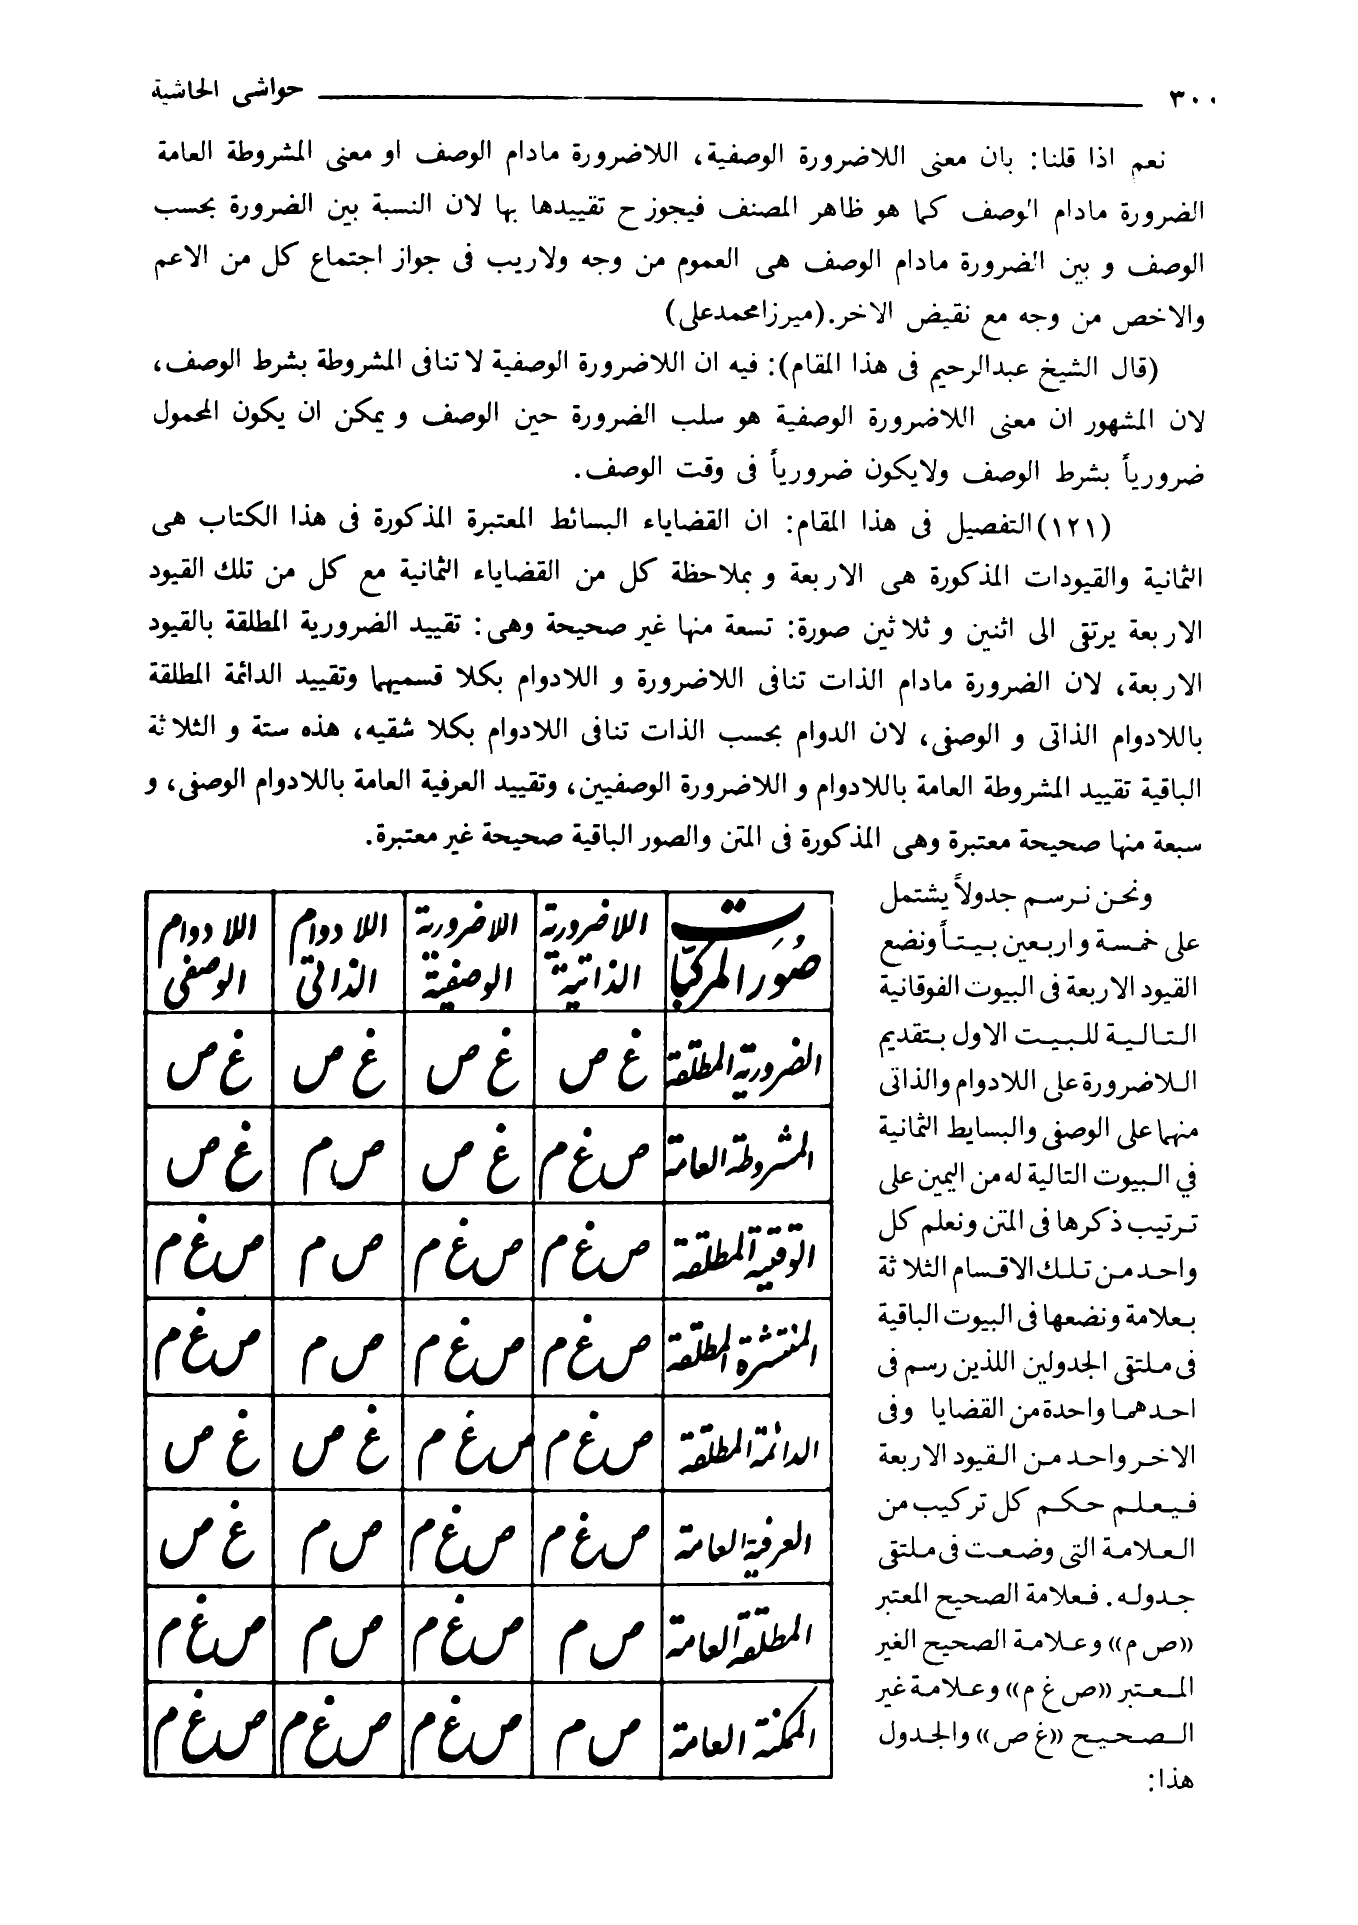 ٣٠٠ حواشى الحاشية
نعم اذا قلنا: بان معنى اللاضرورة الوصفية، اللاضرورة مادام الوصف او معنى المشروطة العامة
الضرورة مادام الوصف كما هو ظاهر المصنف فيجوز ح تقييدها بها لان النسبة بين الضرورة بحسب
الوصف و بين الضرورة مادام الوصف هى العموم من وجه ولاريب فى جواز اجتماع كل من الاعم
والاخص من وجه مع نقيض الاخر.(ميرزامحمدعلى)
(قال الشيخ عبدالرحيم فى هذا المقام): فيه ان اللاضرورة الوصفية لا تنافى المشروطة بشرط الوصف،
لان المشهور ان معنى اللاضرورة الوصفية هو سلب الضرورة حين الوصف و يمكن ان يكون المحمول
ضرورياً بشرط الوصف ولايكون ضرورياً فى وقت الوصف.
(١٢١)التفصيل فى هذا المقام: ان القضاياء البسائط المعتبرة المذكورة فى هذا الكتاب هى
الثمانية والقيودات المذكورة هى الاربعة و بملاحظة كل من القضاياء الثمانية مع كل من تلك القيود
الاربعة يرتقى الى اثنين و ثلاثين صورة: تسعة منها غير صحيحة وهى: تقييد الضرورية المطلقة بالقيود
الاربعة، لان الضرورة مادام الذات تنافى اللاضرورة و اللادوام بكلا قسميهما وتقييد الدائمة المطلقة
باللادوام الذاتى و الوصفى، لان الدوام بحسب الذات تنافى اللادوام بكلا شقيه، هذه ستة و الثلاثة
الباقية تقييد المشروطة العامة باللادوام و اللاضرورة الوصفيين، وتقييد العرفية العامة باللادوام الوصفى، و
سبعة منها صحيحة معتبرة وهى المذكورة فى المتن والصور الباقية صحيحة غير معتبرة.
ونحن نرسم جدولاً يشتمل
على خمسة واربعين بيتاً ونضع
القيود الاربعة فى البيوت الفوقانية
التالية للبيت الاول بتقديم
اللاضرورة على اللادوام والذاتى
منهما على الوصفى والبسايط الثمانية
في البيوت التالية له من اليمين على
ترتيب ذكرها فى المتن ونعلم كل
واحد من تلك الاقسام الثلاثة
بعلامة ونضعها فى البيوت الباقية
فى ملتقى الجدولين اللذين رسم فى
احدهما واحدة من القضايا وفى
الاخر واحد من القيود الاربعة
فيعلم حكم كل تركيب من
العلامة التى وضعت فى ملتقى
جدوله. فعلامة الصحيح المعتبر
«ص م» وعلامة الصحيح الغير
المعتبر «ص غ م» وعلامة غير
الصحيح «غ ص» والجدول
هذا:
صُوَر المركبّات اللاضرورية الذاتية اللاضرورية الوصفية اللادوام الذاتى اللادوام الوصفى
الضرورية المطلقة غ ص غ ص غ ص غ ص
المشروطة العامة ص غ م غ ص ص م غ ص
الوقتية المطلقة ص غ م ص غ م ص م ص غ م
المنتشرة المطلقة ص غ م ص غ م ص م ص غ م
الدائمة المطلقة ص غ م ص غ م غ ص غ ص
العرفية العامة ص غ م ص غ م ص م غ ص
المطلقة العامة ص م ص غ م ص م ص غ م
الممكنة العامة ص م ص غ م ص غ م ص غ م